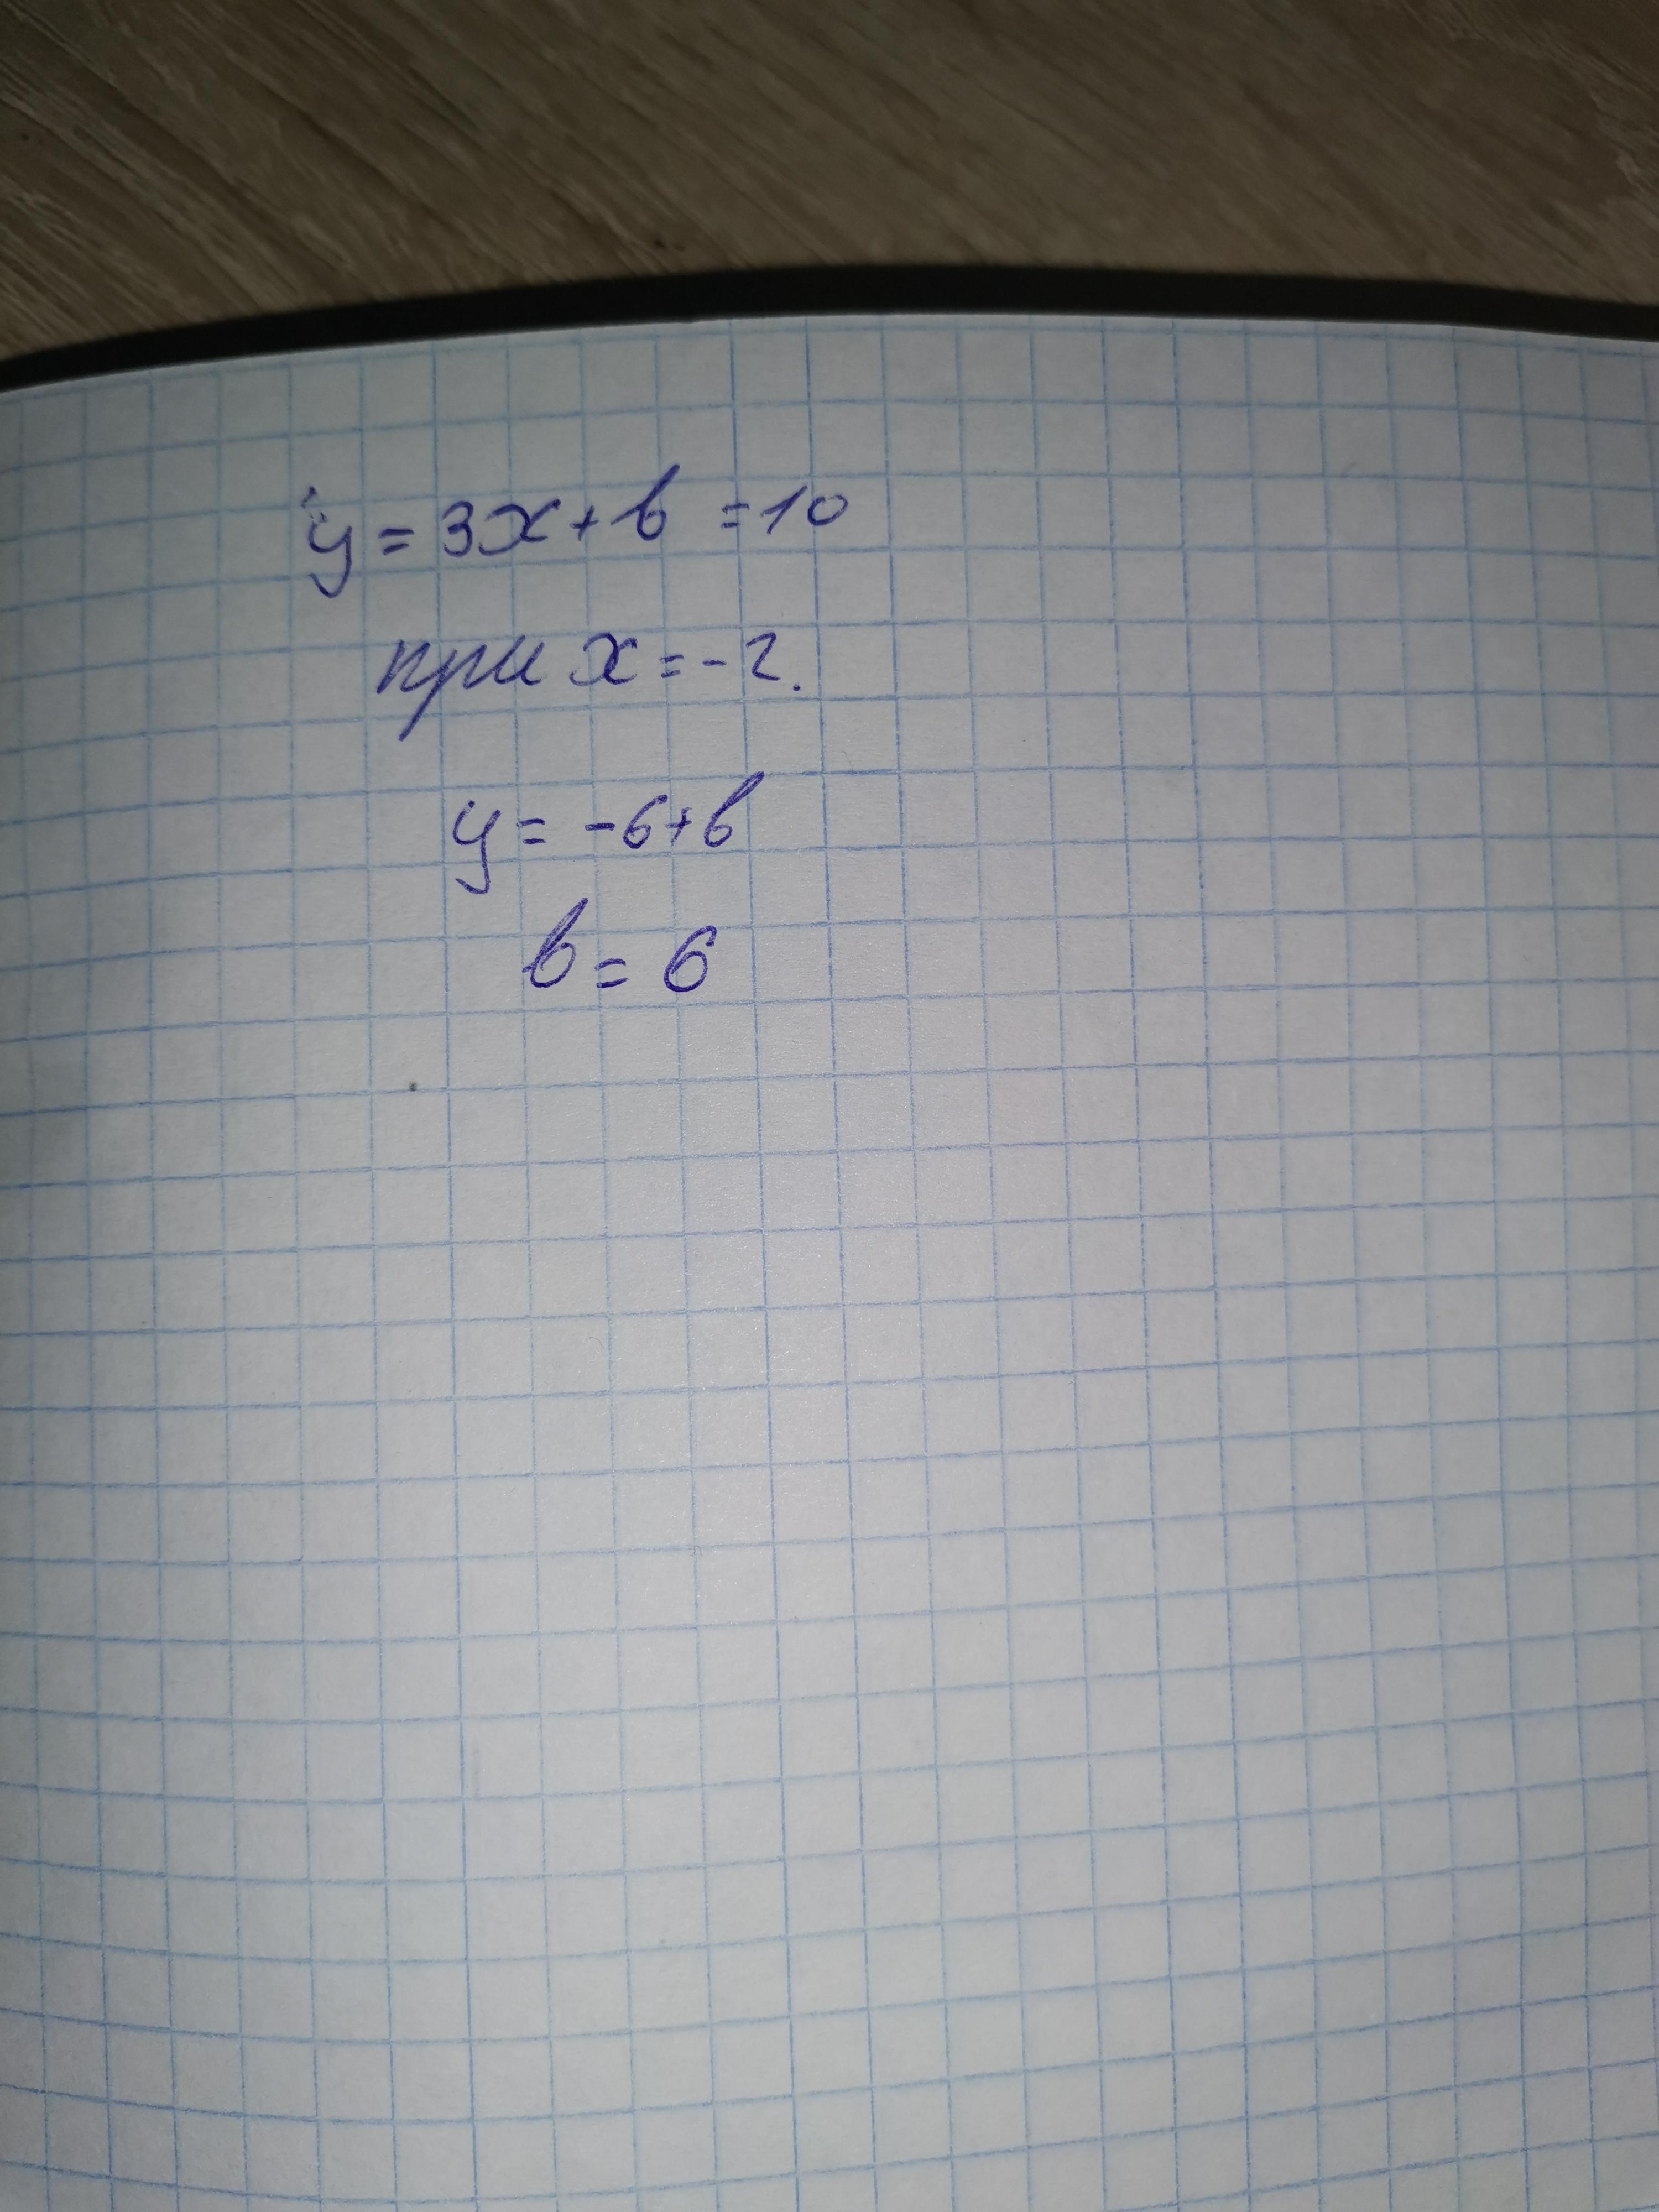 y = 3x + b = 10
при x = -2.
y = -6+b
b = 6